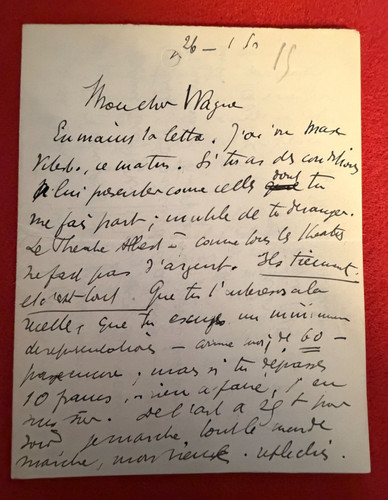 26 – 1
15
Mon cher Wague
En mains ta lettre. J'ai vu Max
ce matin. Si tu as des conditions
à lui présenter comme celles dont tu
me fais part, inutile de te déranger.
Le Théâtre Albert 1er, comme tous les théâtres
ne fait pas d'argent. Ils tiennent
et c'est tout. Que tu t'intéresses à la
recette, que tu exiges un minimum
de représentations – de 60 –
passe encore ; mais si tu dépasses
10 francs, rien à faire, j'en
suis sûr. De l'art à 25 f par
soir je marche, tout le monde
marche, réfléchis.